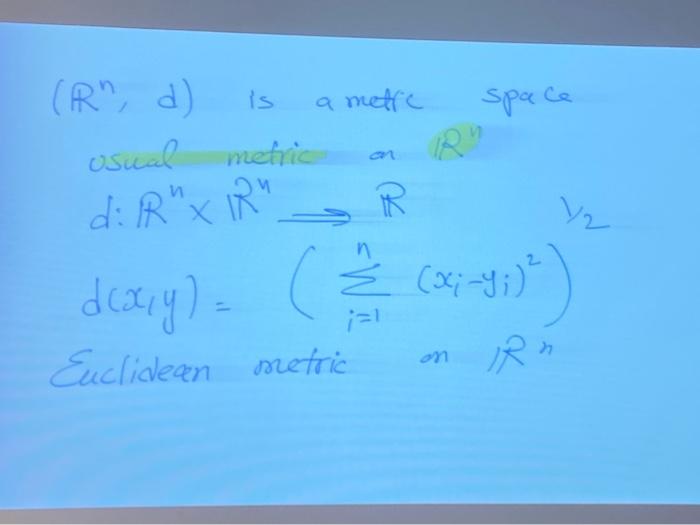 (ℝⁿ, d) is a metric space
usual metric on ℝⁿ
d: ℝⁿ × ℝⁿ → ℝ
d(x, y) = ( ∑ᵢ₌₁ⁿ (xᵢ-yᵢ)² )^1/2
Euclidean metric on ℝⁿ